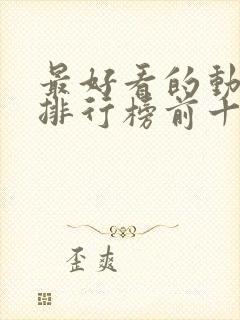 最好看的動
排行榜前十
歪爽